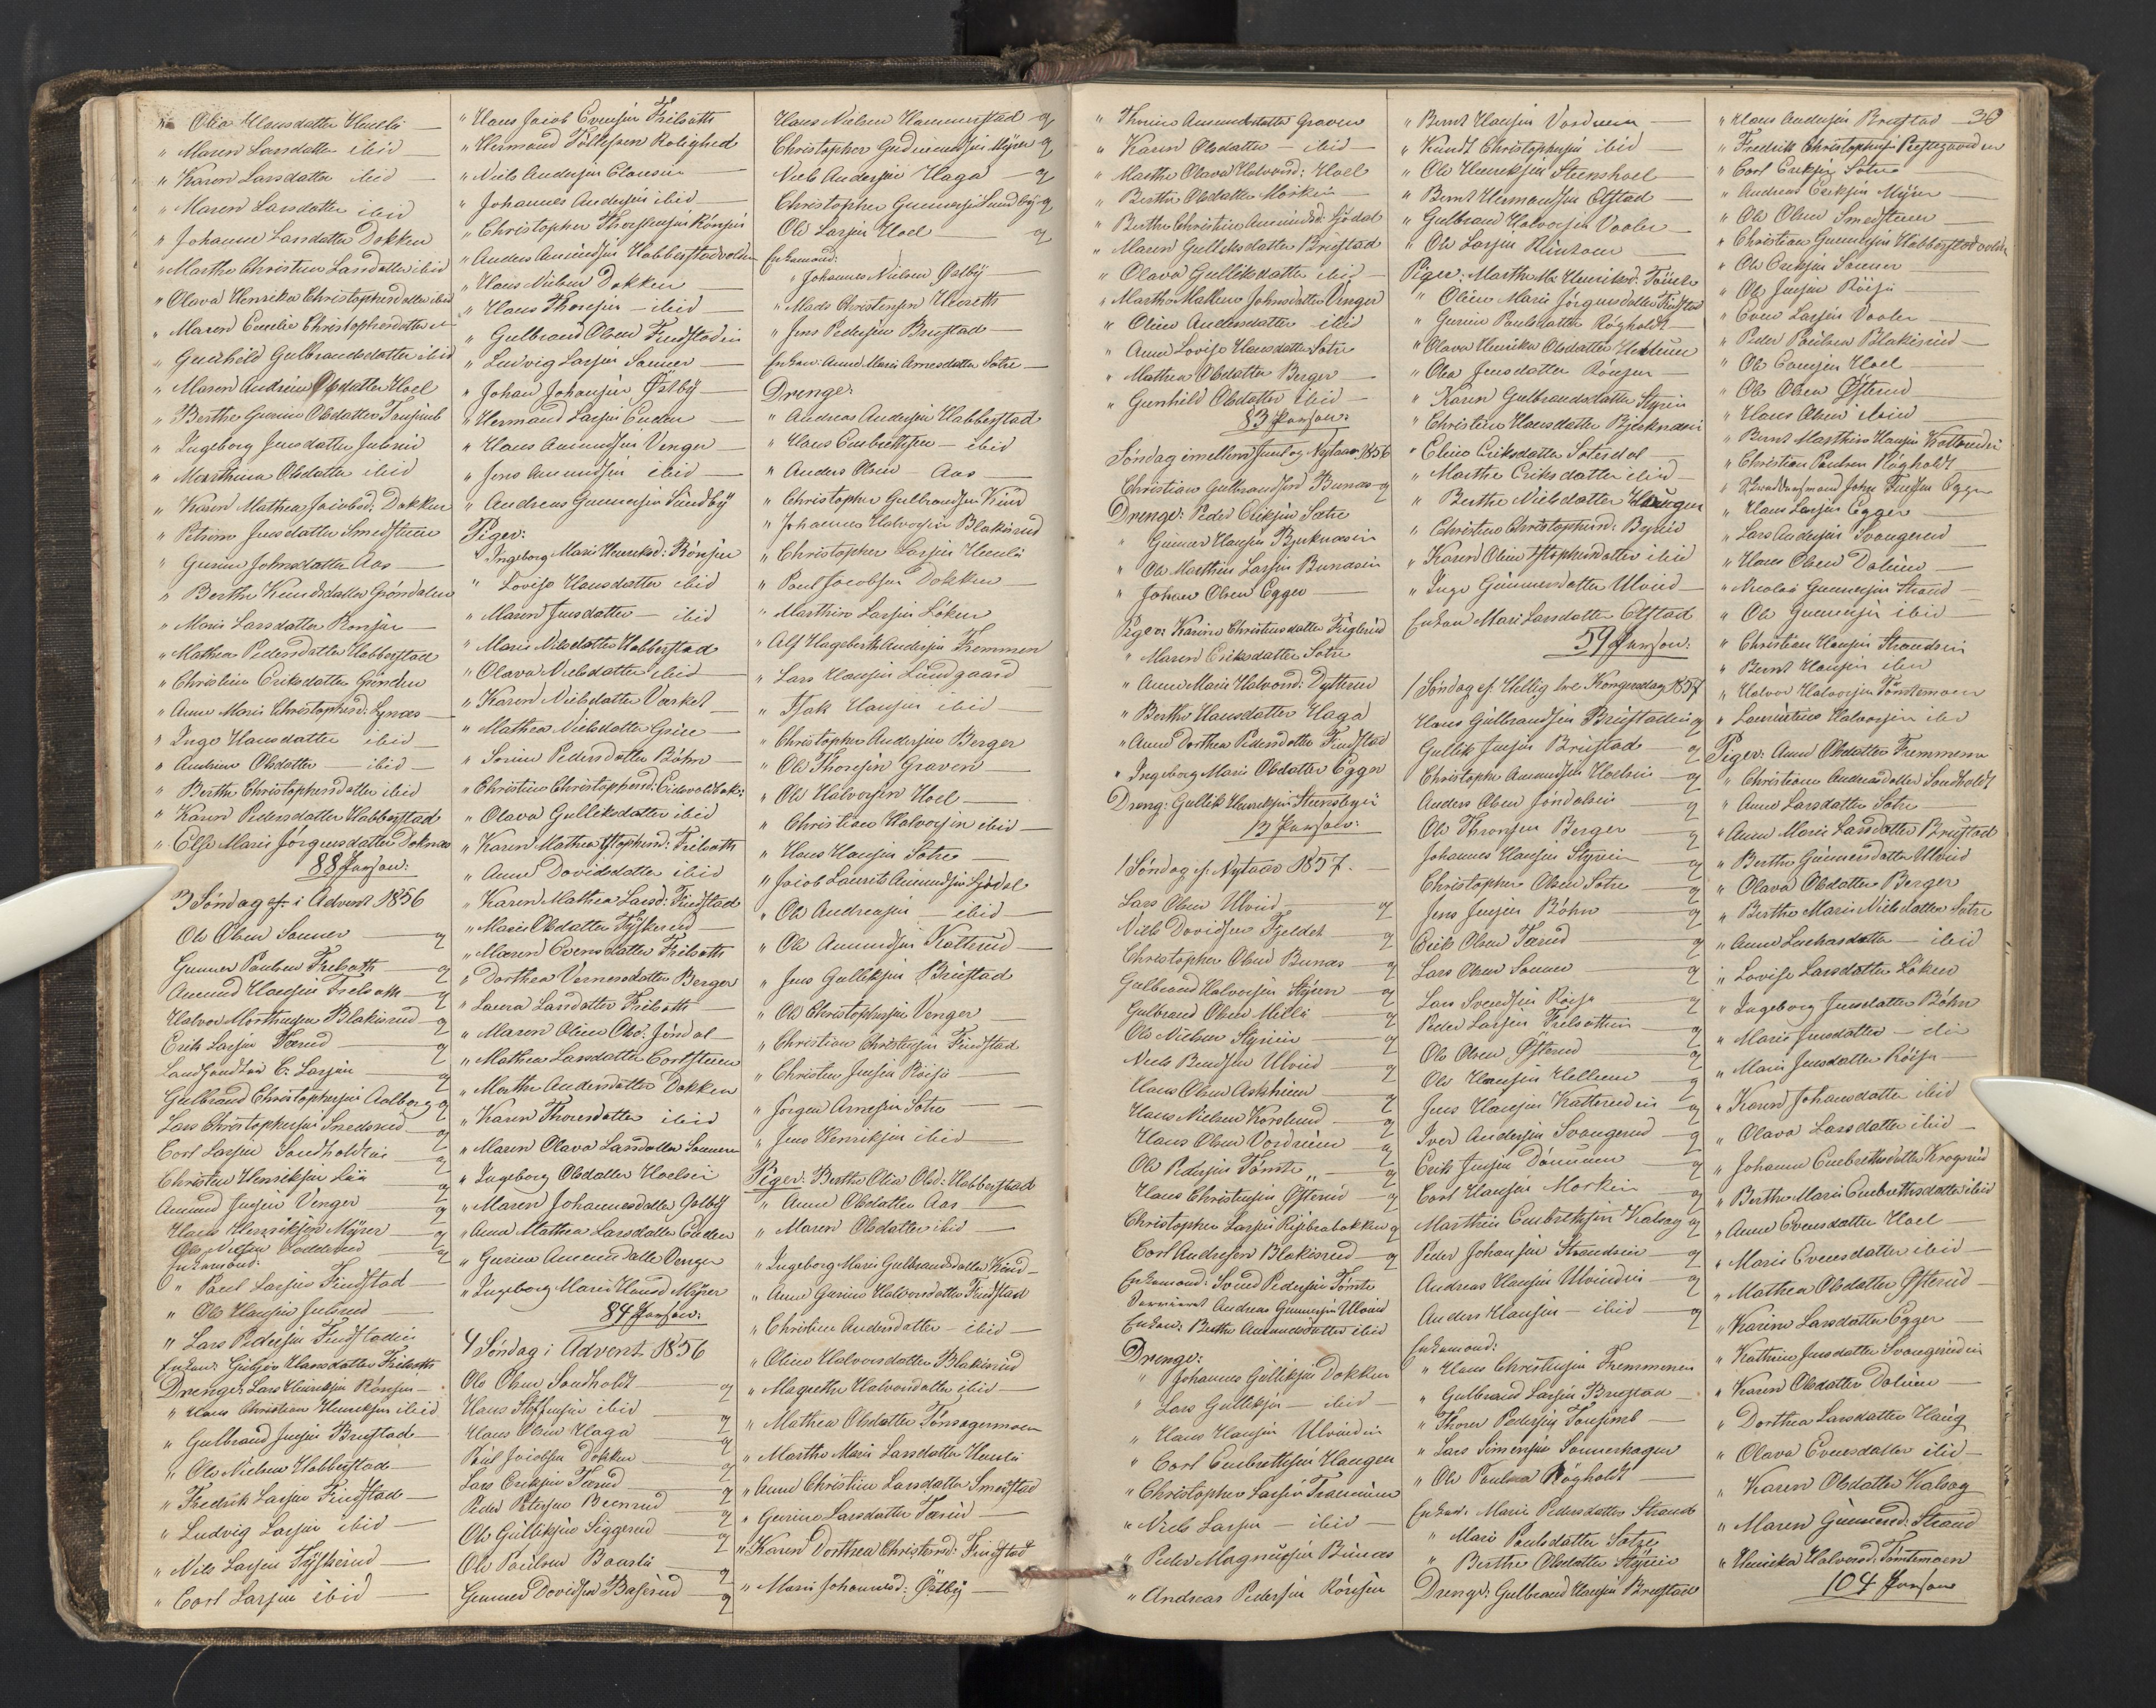 " Olia Hansdatter Huuli
" Maren Larsdatter ibid
" Karen Larsdatter ibid
" Maren Larsdatter ibid
" Johanne Larsdatter Dokken
" Marthe Christine Larsdatter ibid
" Olava Henrika Christophersdatter ibid
" Maren Emelie Christophersdatter
" Gunhild Gulbrandsdatter ibid
" Maren Andrine Olsdatter Hoel
" Berthe Gurine Olsdatter
" Ingeborg Jensdatter Julsrud
" Marthina Olsdatter ibid
" Karen Mathea Jacobsd: Dokken
" Petrine Jensdatter Smedstuen
" Gurine Johnsdatter Aas
" Berthe Knudsdatter Gröndalen
" Marie Larsdatter Ronsjen
" Mathea Pedersdatter Habberstad
" Christine Eriksdatter Grönden
" Anne Marie Christophersd: Synæs
" Inge Hansdatter ibid
" Andrine Olsdatter ibid
" Berthe Christophersdatter ibid
" Karen Pedersdatter Habberstad
" Else Marie Jörgensdatter Doknæs
88 Person:
3 Söndag i Advent 1856
Ole Olsen Sonner
Gunner Paulsen Frelsath
Amund Hansen Frelsath
Halvor Morthensen Blakisrud
Erik Larsen Tærud
Landhandler C. Larsen
Gulbrand Christophersen Aalborg
Lars Christophersen Smedsrud
Carl Larsen Sandholdtei
Christen Henriksen Lia
Amund Jensen Venger
Hans Henriksen Myrer
Ole Nilsen Loddsrud
Enkemand:
" Paul Larsen Findstad
" Ole Hansen Julsrud
" Lars Pedersen Findstadeie
Enken: Gubjör Hansdatter Frelsath
Drenge: Lars Henriksen Rönsjen
" Hans Christian Henriksen ibid
" Gulbrand Jensen Brustad
" Ole Nielsen Habberstad
" Fredrik Larsen Findstad
" Ludvig Larsen ibid
" Nils Larsen Tyskerud
" Carl Larsen ibid
" Hans Jacob Evensen Frelsath
" Hermand Tollefsen Rolighed
" Niels Andersen Clausen
" Johannes Andersen ibid
" Christopher Thorstensen Rönsjen
" Anders Amundsen Habberstadvolden
" Hans Nielsen Dokken
" Hans Thoresen ibid
" Gulbrand Olsen Findstadeie
" Ludvig Larsen Sonner
" Johan Johansen Østby
" Hermand Larsen Enden
" Hans Amundsen Venger
" Jens Amundsen ibid
" Andreas Gunnersen Sundby
Piger:
" Ingeborg Marie Henriksd: Rönsjen
" Lovise Hansdatter ibid
" Maren Jensdatter ibid
" Marie Nilsdatter Habberstad
" Olava Nielsdatter ibid
" Karen Nielsdatter Værket
" Mathea Nielsdatter Griee
" Sorine Pedersdatter Böhn
" Christine Christophersd: Eidsvoldbak:
" Olava Gulliksdatter ibid
" Karen Mathea Xstophersd: Frelsath
" Anne Davidsdatter ibid
" Karen Mathea Larsd: Findstad
" Marie Olsdatter Tyskerud
" Maren Evensdatter Frelsath
" Dorthea Vernersdatter Berger
" Laura Larsdatter Frelsath
" Maren Oline Olsd: Jöndal
" Mathea Larsdatter Carlstuen
" Marthe Andersdatter Dokken
" Karen Thoresdatter ibid
" Maren Olava Larsdatter Sonneren
" Ingeborg Olsdatter Hoelsei
" Maren Johannesdatter Østby
" Anne Mathea Larsdatter Enden
" Gurine Amundsdatter Venger
" Ingeborg Marie Hansd Myrer
84 Person:
4 Söndag i Advent 1856
Ole Olsen Sandholdt
Hans Steffensen ibid
Hans Olsen Haga
Paul Jacobsen Dokken
Lars Eriksen Tærud
Peder Petersen Beenrud
Ole Gulliksen Siggerud
Ole Paulsen Baarli
Gunner Davidsen Baserud
Hans Nielsen Hammerstad
Christopher Gudmundsen Myrer
Niels Andersen Haga
Christopher Gunnersen Sundby
Ole Larsen Hoel
Enkemand:
" Johannes Nielsen Østby
" Mads Christensen Henseth
" Jens Pedersen Brustad
Enken: Anne Marie Arnesdatter Sotre
Drenge:
" Andreas Andersen Habberstad
" Hans Embrethsen ibid
" Anders Olsen Aas
" Christopher Gulbrandsen Kind
" Johannes Halvorsen Blakisrud
" Christopher Larsen Huuli
" Paul Jacobsen Dokken
" Marthin Larsen Löken
" Alf Hagebert Andersen Fremmen
" Lars Hansen Lundgaard
" Isak Hansen ibid
" Christopher Andersen Berger
" Ole Thoresen Graven
" Ole Halvorsen Hoel
" Christian Halvorsen ibid
" Hans Hansen Sotre
" Jacob Laurits Amundsen Gjödal
" Ole Andreasen ibid
" Ole Amundsen Kattrud
" Jens Gulliksen Brustad
" Ole Christophersen Venger
" Christian Christensen Findstad
" Christen Jensen Röise
" Jörgen Arnesen Sotre
" Jens Henriksen ibid
Piger: Berthe Olia Olsd: Habberstad
" Anne Olsdatter Aas
" Maren Olsdatter ibid
" Ingeborg Marie Gulbrandsdatter Kind
" Anne Gurine Halvorsdatter Findstad
" Christine Andersdatter ibid
" Oline Halvorsdatter Blakisrud
" Magrethe Halvorsdatter ibid
" Mathea Olsdatter Tönsagermoen
" Marthe Marie Larsdatter Huuli
" Anne Christine Larsdatter Smedstad
" Gurine Larsdatter Tærud
" Karen Dorthea Christensd: Findstad
" Marie Johannesd: Østby
36
" Thorine Amundsdatter Graven
" Karen Olsdatter ibid
" Marthe Olava Halvorsd: Hoel
" Berthe Olsdatter Morkin
" Berthe Christine Amundsd: Gjödal
" Maren Gulliksdatter Brustad
" Olava Gulliksdatter ibid
" Marthe Mathea Johnsdatter Venger
" Oline Andersdatter ibid
" Anne Lovise Hansdatter Sotre
" Mathea Olsdatter Berger
" Gunhild Olsdatter ibid
83 Person:
Söndag imellem Juul og Nytaar 1856
Christian Gulbrandsen Bunæs
Drenge: Peder Eriksen Sotre
" Gunner Hansen Bjerknæsei
" Ole Marthin Larsen Bundsei
" Johan Olsen Egger
Piger: Karine Christensdatter Fuglerud
" Maren Eriksdatter Sotre
" Anne Marie Halvorsd: Dytterud
" Berthe Hansdatter Haga
" Anne Dorthea Pedersdatter Findstad
" Ingeborg Marie Olsdatter Egger
Dreng: Gullik Henriksen Steensbyei
13 Person:
1 Söndag ef. Nytaar 1857.
Lars Olsen Ulvind
Niels Davidsen Fjeldet
Christopher Olsen Bunæs
Gulbrand Halvorsen Styren
Gulbrand Olsen Milli
Ole Nielsen Styriei
Niels Bendsen Ulvind
Hans Olsen Askheim
Hans Nielsen Korslund
Hans Olsen Vordrum
Ole Pedersen Tömte
Hans Christensen Østerud
Christopher Larsen Ripebakken
Carl Andersen Blakisrud
Enkemand: Svend Pedersen Tömte
Andreas Gunnersen Ulvind
Enken: Berthe Amundsdatter ibid
Drenge:
" Johannes Gulliksen Dokken
" Lars Gulliksen ibid
" Hans Hansen Ulvindei
" Carl Embretsen Haugen
" Christopher Larsen
" Niels Larsen ibid
" Peder Magnussen Bunæs
" Andreas Pedersen Rönsjen
" Bernt Hansen Vordrum
" Knudt Christophersen ibid
" Ole Henriksen Steenshoel
" Bernt Hermandsen Elstad
" Gulbrand Halvorsen Vaaler
" Ole Larsen
Piger: Marthe Ma: Henriksd: Tömte
" Oline Marie Jörgensdatter Findstad
" Gurine Paulsdatter Rögholdt
" Olava Henrika Olsdatter Hellum
" Olea Jensdatter Rönsjen
" Karen Gulbrandsdatter Styrei
" Christine Hansdatter Bjerknæsei
" Eline Eriksdatter Sotendal
" Marthe Eriksdatter ibid
" Berthe Nielsdatter Haugen
" Christine Christophersd: Byrud
" Karen Oline Xstophersdatter ibid
" Inge Gunnersdatter Ulvind
Enken Mari Larsdatter Elstad
59 Person:
1 Söndag ef. Hellig tre Kongersdag 1857
Hans Gulbrandsen Brustadei
Gullik Jensen Brustad
Christopher Amundsen Hoelsei
Anders Olsen Jöndalsei
Ole Thronsen Berger
Johannes Hansen Styrei
Christopher Olsen Sotre
Jens Jensen Böhn
Erik Olsen Tærud
Lars Olsen Sonner
Lars Svendsen Röise
Peder Larsen Frelsathei
Ole Olsen Østerud
Ole Hansen Hellum
Jens Hansen Kattrudei
Iver Andersen Svangerud
Erik Jensen Dönnum
Carl Hansen Morkin
Marthin Embrethsen Kalsag
Peder Johansen Strandsei
Andreas Hansen Ulvindei
Anders Hansen ibid
Enkemand:
" Hans Christensen Fremmenei
" Gulbrand Larsen Brustad
" Thorer Pedersen
" Lars Simensen Sonnerhagen
" Ole Paulsen Rögholdt
Enken: Marie Pedersdatter Strand
" Mari Paulsdatter Satre
" Berthe Olsdatter Styrei
Drenge: Gulbrand Hansen Brustad
" Hans Andersen Brustad
" Fredrik Christophersen Prestegaarden
" Carl Eriksen Sotre
" Andreas Eriksen Myrer
" Ole Olsen Smedstuen
" Christian Gunnersen Habberstadvolden
" Ole Eriksen Sonner
" Ole Jensen Röise
" Even Larsen Vaaler
" Peder Paulsen Blakisrud
" Ole Evensen Hoel
" Ole Olsen Østerud
" Hans Olsen ibid
" Bernt Marthin Hansen Kattrudei
" Christian Paulsen Rögholdt
" John Findsen Egger
" Hans Larsen Egger
" Lars Andersen Svangerud
" Hans Olsen Dalium
" Nicolai Gunnersen Strand
" Ole Gunnersen ibid
" Christian Hansen Strandsei
" Bernt Hansen ibid
" Halvor Halvorsen Tömtemoen
" Laurentius Halvorsen ibid
Piger: Anne Olsdatter Fremmen
" Christiane Andreasdatter Sandholdt
" Anne Larsdatter Sotre
" Anne Marie Larsdatter Brustad
" Berthe Gunnersdatter Ulvind
" Olava Olsdatter Berger
" Berthe Marie Nielsdatter Sotre
" Anne Zachariasdatter ibid
" Lovise Larsdatter Löken
" Ingeborg Jensdatter Böhn
" Marie Jensdatter ibid
" Mari Jensdatter Röise
" Karen Johansdatter ibid
" Olava Larsdatter ibid
" Johanne Embrethsdatter Krogsrud
" Berthe Marie Embrethsdatter ibid
" Anne Evensdatter Hoel
" Marie Evensdatter ibid
" Mathea Olsdatter Østerud
" Karine Larsdatter Egger
" Kathrine Jensdatter Svangerudei
" Karen Olsdatter Dalium
" Dorthea Larsdatter Haug
" Olava Evensdatter ibid
" Karen Olsdatter Kalsag
" Maren Gunnersd: Strand
" Henrika Halvorsd: Tömtemoen
104 Person